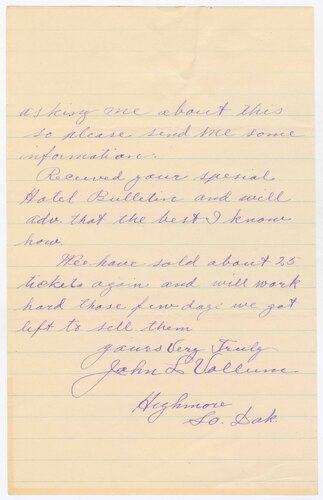 asking me about this
so please send me some
information.
Received your spesial
Hotel Bulletin and will
adv. that the best I know
how
We have sold about 25
tickets again and will work
hard those few days we got
left to sell them
yours Very Truly
John L Vollum
Highmore
So. Dak.